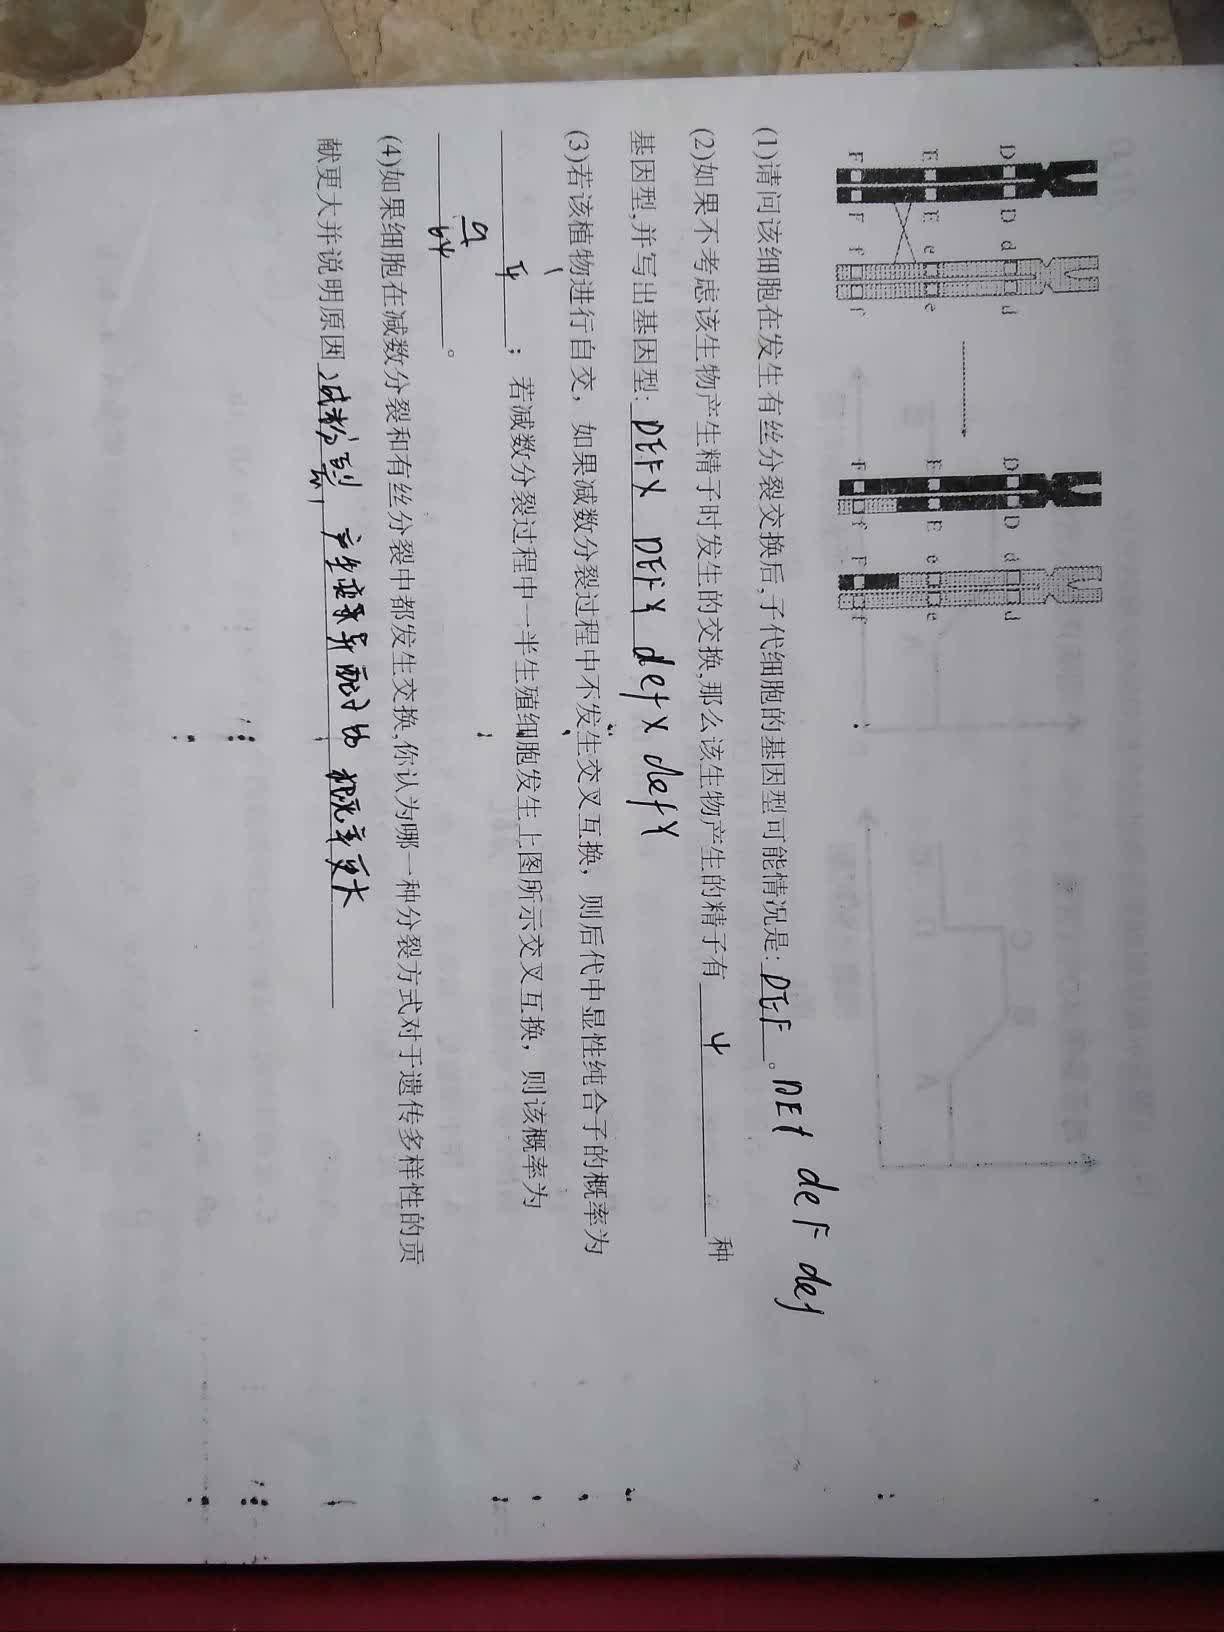 D D d d
E E e e
F F f f
D D d d
E E e e
F f F f
(1)请问该细胞在发生有丝分裂交换后,子代细胞的基因型可能情况是: DEF 。 DEf deF def
(2)如果不考虑该生物产生精子时发生的交换,那么该生物产生的精子有 4 种
基因型,并写出基因型: DEFX DEFY defX defY
(3)若该植物进行自交，如果减数分裂过程中不发生交叉互换，则后代中显性纯合子的概率为
1/4 ；若减数分裂过程中一半生殖细胞发生上图所示交叉互换，则该概率为
9/64 。
(4)如果细胞在减数分裂和有丝分裂中都发生交换,你认为哪一种分裂方式对于遗传多样性的贡
献更大并说明原因 减数分裂 产生变异配子的概率更大